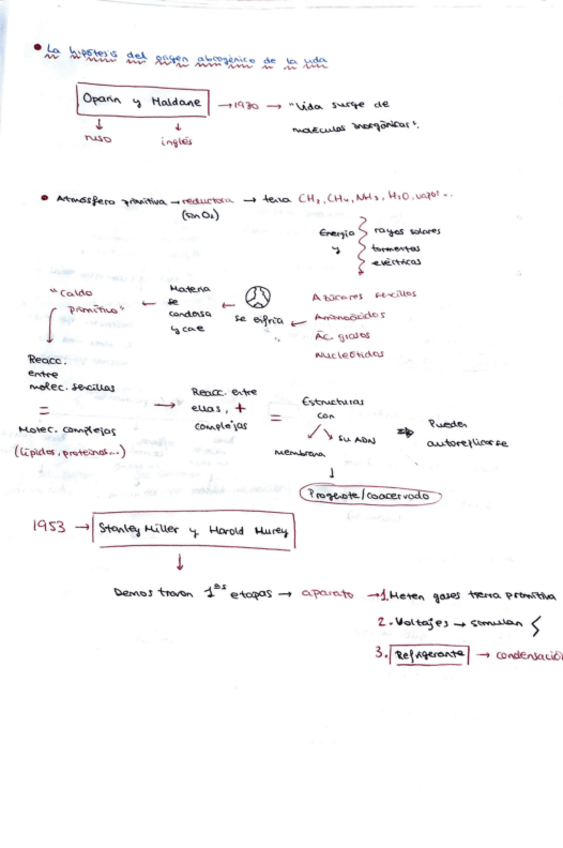 La hipótesis del origen abiogénico de la vida
Oparin y Haldane → 1930 → "Vida surge de
moléculas inorgánicas".
ruso
inglés
Atmósfera primitiva → reductora → tenía CH2, CH4, NH3, H2O, vapor...
(sin O2)
Energía
y
rayos solares
tormentas
eléctricas
Azúcares sencillos
Aminoácidos
Ác. grasos
Nucleótidos
se enfría
Materia
se
condensa
y cae
"Caldo
primitivo"
Reacc.
entre
molec. sencillas
=
Molec. complejas
(lípidos, proteínas...)
→ Reacc. entre
ellas, +
complejas
=
Estructuras
con
membrana
su ADN
Pueden
autoreplicarse
Progenote/coacervado
1953 → Stanley Miller y Harold Hurey
Demostraron 1as etapas → aparato → 1. Meten gases tierra primitiva
2. Voltajes → simulan
3. Refrigerante → condensació